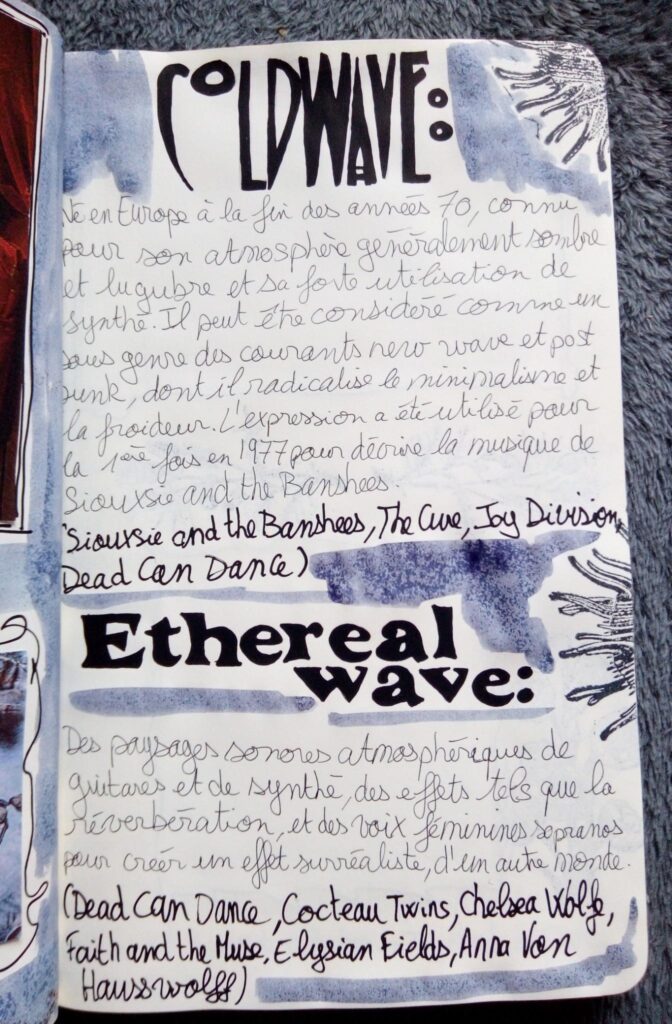 COLDWAVE:
Né en Europe à la fin des années 70, connu
pour son atmosphère généralement sombre
et lugubre et sa forte utilisation de
synthé. Il peut être considéré comme un
sous genre des courants new wave et post
punk, dont il radicalise le minimalisme et
la froideur. L'expression a été utilisé pour
la 1ère fois en 1977 pour décrire la musique de
Siouxsie and the Banshees.
(Siouxsie and the Banshees, The Cure, Joy Division,
Dead Can Dance)
Ethereal
wave:
Des paysages sonores atmosphériques de
guitares et de synthé, des effets tels que la
réverbération, et des voix féminines sopranos
pour créér un effet surréaliste, d'un autre monde.
(Dead Can Dance, Cocteau Twins, Chelsea Wolfe,
Faith and the Muse, Elysian Fields, Anna Von
Hausswolff)